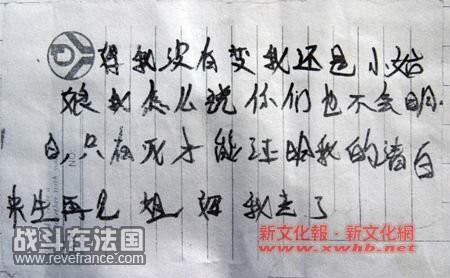 得我没有变我还是小姑
娘我怎么说你们也不会明
白,只有死才能证明我的清白
来生再见 姐 我走了
新文化報·新文化網
www.xwhb.net
战斗在法国
www.revefrance.com